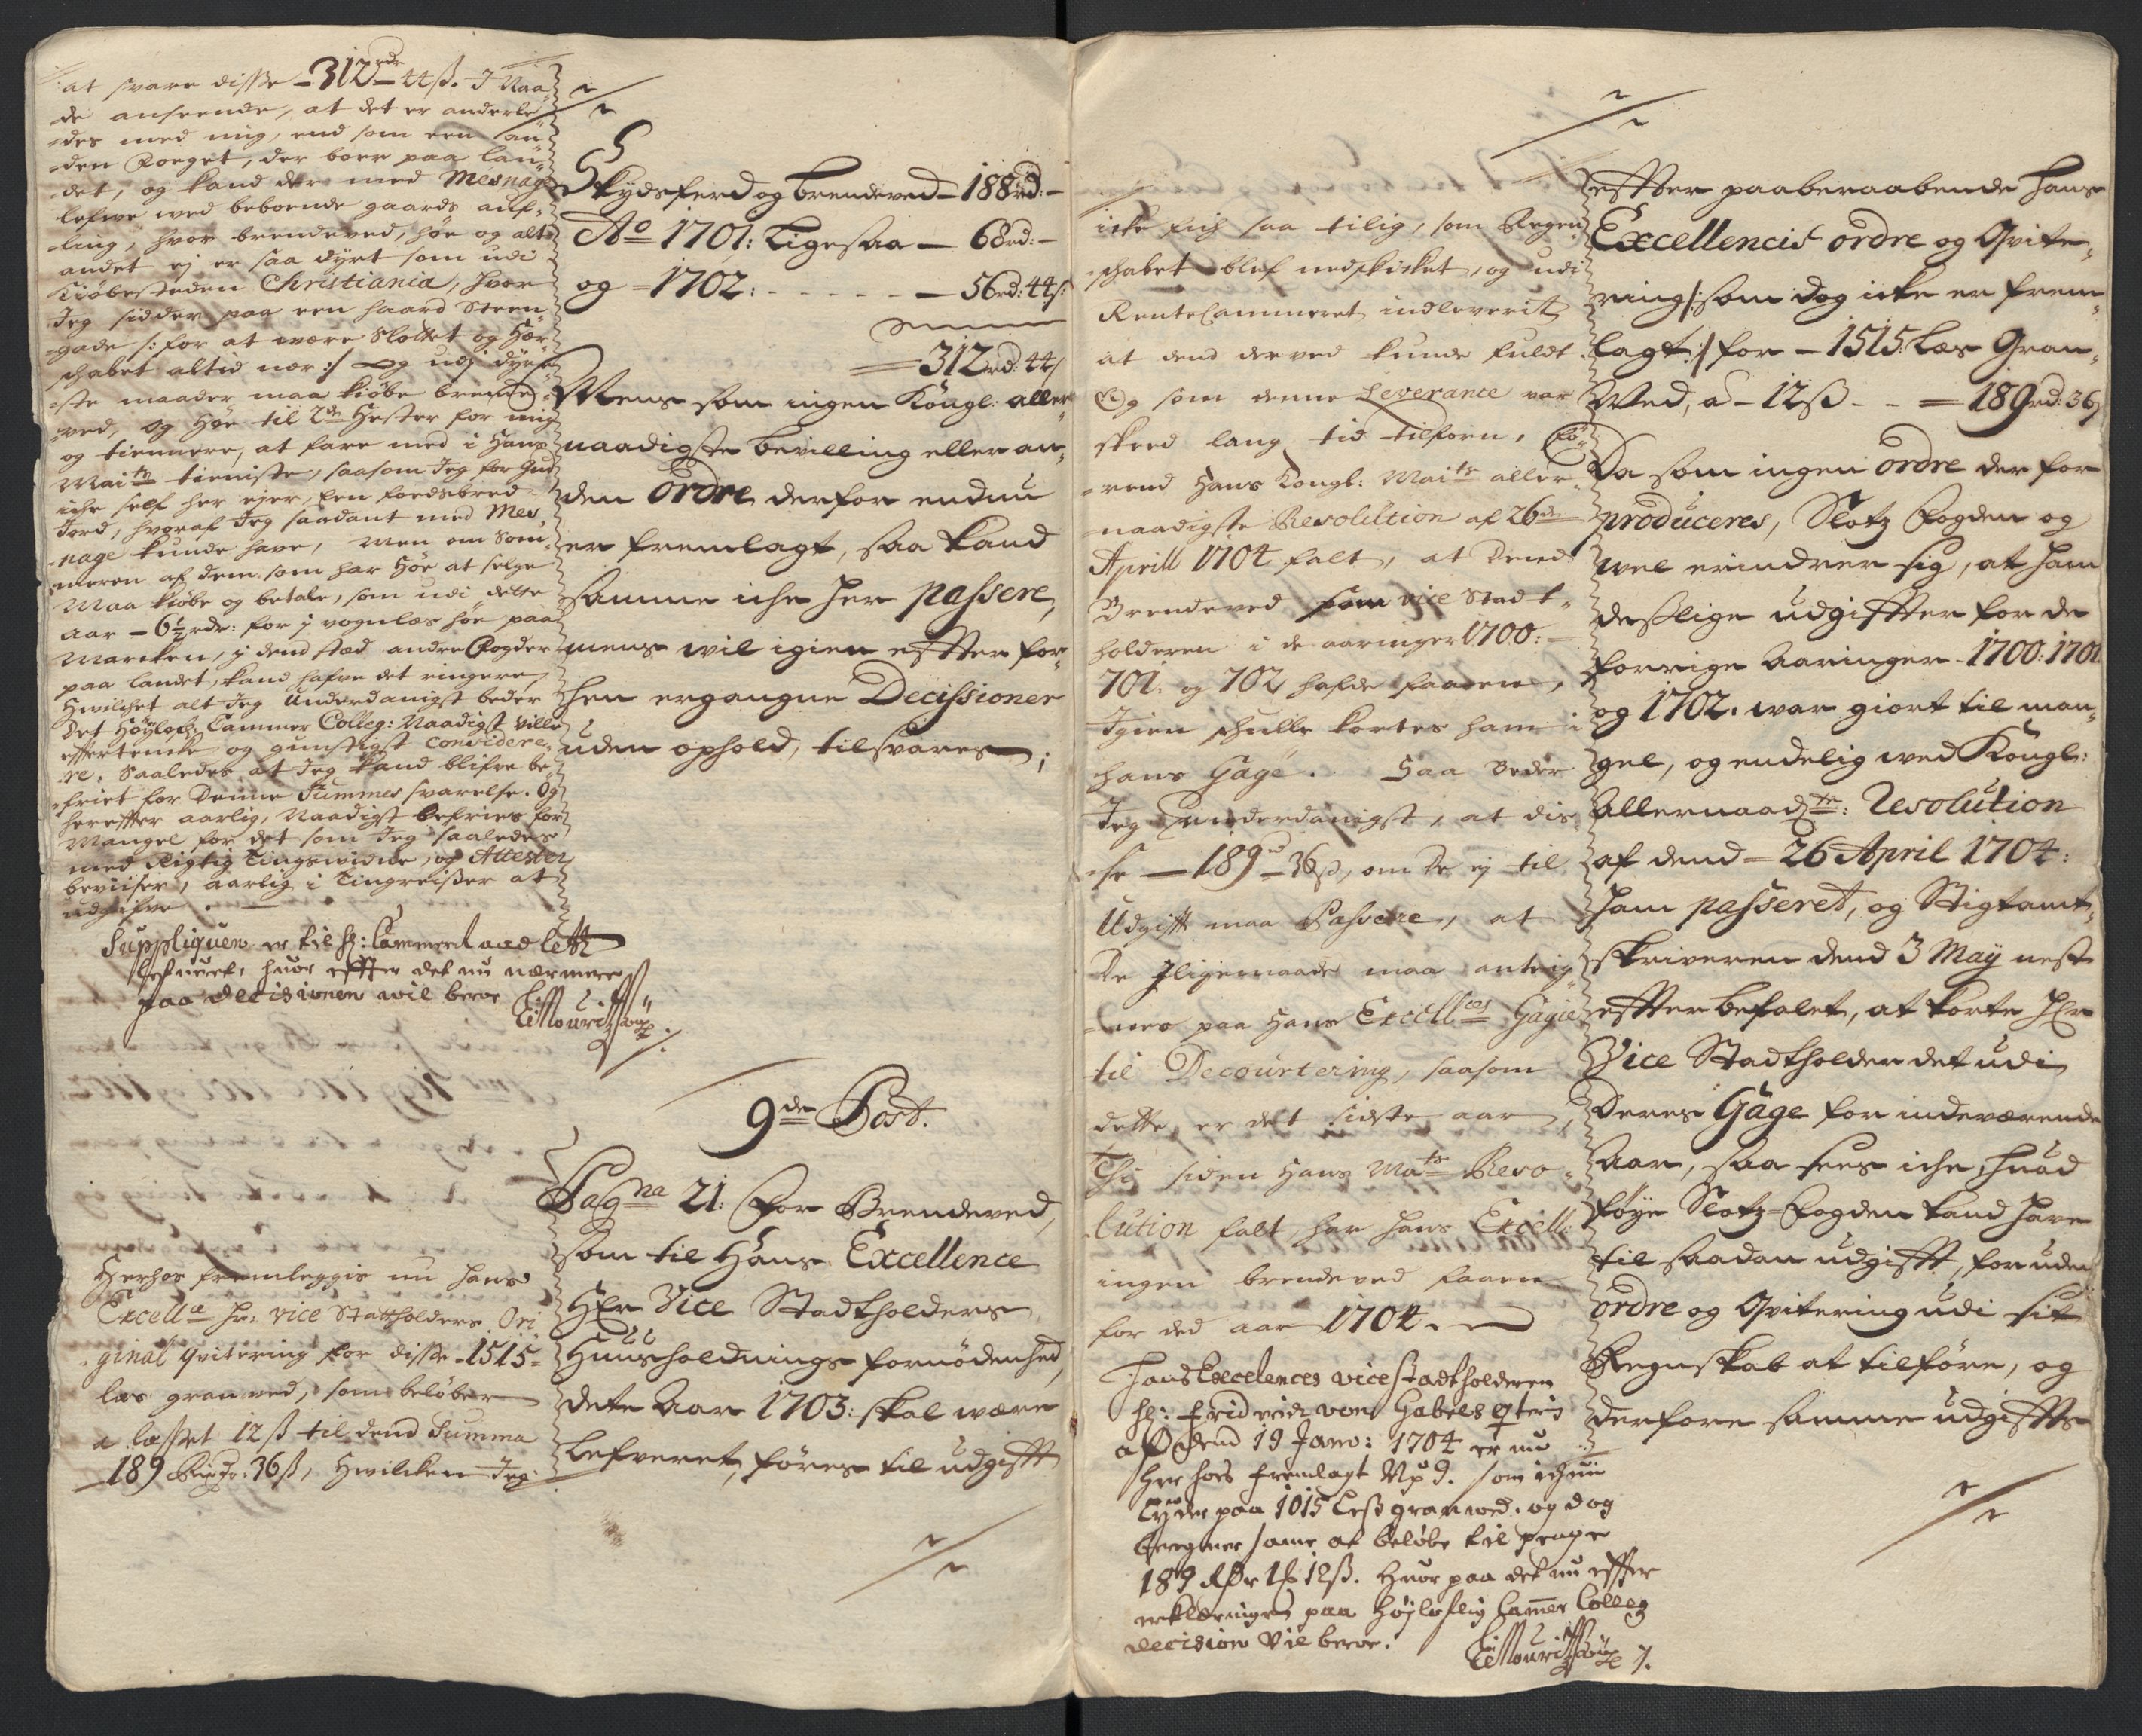 at svare disse - 312 rdr 44 ß. I Naa-
de anseende, at det er anderle-
des med mig, end som een an-
den Foeget, der boer paa lan-
det, og kand der med Mesnage
lefwe wed beboende gaards auf-
ling, hvor brendeved, høe og alt
andet ej er saa dyrt som udi
Kiøbesteden Christiania, hvor
Jeg sidder paa een haard Steen-
gade /: for at være Slottet og Her-
schabet altid nær :/ og udj dyre-
ste maader maa kiøbe brende-
ved, og Høe til 2de Hester for mig
og tiennere, at fare med i Hans
Maits tieniste, saasom Jeg for Gud
iche self her ejer, Een foedsbred
Jord, hvoraf Jeg saadant med Mes-
nage kunde have, Men om Som-
meren af dem som har Høe at selge
Maa kiøbe og betale, som udi dette
aar - 6½ rdr: for j vognlæs høe paa
Marcken, j dend stæd andre Fogder
paa landet, kand hafve det ringere,
Hwilchet alt Jeg Underdanigst beder
Det Høylofl: Cammer Colleg: Naadigst ville
eftertencke og gunstigst considere-
re. Saaledes at Jeg kand blifve be-
friet for Denne Summes svarelse. Og
herefter aarlig, Naadigst befries for
Mangel for det som Jeg saaledes
med Rigtig Tingswidne, og Attester
beviiser, aarlig i Tingreiser at
udgifve.
Suppliquen er til Hr: Cammerraad
lefueret, huor effter det nu nærmere
paa decisionen wil beroe

Skydsferd og brendeved - 188 rd: -
Ao 1701: Ligesaa - 68 rd: -
og - 1702: - - - - - - 56 rd: 44 ß:
= 312 rd: 44 ß
Mens som ingen Kongl: aller-
naadigste bevilling eller an-
den Ordre derfor endnu
er fremlagt, saa kand
samme iche her passere,
mens wil igien effter for-
hen ergangne Decissioner
uden ophold, tilsvares;

9de Post.

Pagna 21: For Brendeved,
som til Hans Excellence
Hr Vice Stadtholders
Huusholdnings fornødenhed,
dete Aar 1703: skal være
lefveret, føres til udgifft

Herhos fremleggis nu hans
Excellce Hr: Vice Statholders Ori-
ginal qvitering for disse - 1515 -
læs granved, som beløber
a læsset 12 ß til dend Summa
189 Rixdr: 36 ß, Hwilcken Jeg

icke fich saa tilig, som Regen-
schabet blef nedskicket, og udi
RenteCammeret indleverit
at dend derved kunde fuldt
Og som denne Leverance var
skeed lang tid tilforn, fø-
rend Hans Kongl: Maits aller-
naadigste Resolution af 26de
Aprill 1704 falt, at Dend
Brendeved som vice Stadt-
holderen i de aaringer 1700: -
701: og 702 hafde faaen,
Igien schulle kortes ham i
hans Gage. Saa Beder
Jeg underdanigst, at dis-
se - 189 rd - 36 ß, om De ej til
Udgift maa Passere, at
De Iligemaade maa anteig-
nes paa Hans Excellces Gagie
til Decourtering, saasom
dette er det sidste aar,
Thj siden Hans Mats Reso-
lution falt har hans Excell:
ingen brendeved faaen
for ded aar 1704.
Hans Excelences vice stadtholderen
Hr: Friderich von Gabels qvitering
af dend 19 Janv: 1704 er nu
her hos fremlagt som ichun
lyder paa 1015 Less granved. og dog
beregnes same at beløbe til penge
189 Rdr 1 ß 12 ß. Huor paa det nu effter
erklæringen paa Høylofflig Camer Colleg
decision vil beroe.

effter paaberaabende hans
Excellencis ordre og Qvite-
ring /: som dog icke er frem-
lagt :/ for - 1515 Læs Gran-
Wed, a - 12 ß - - = 189 rd: 36 ß
Da som ingen ordre derfor
produceres, Slotz Fogden og
wel erindrer sig, at ham
deslige udgiffter for de
forrige Aaringer 1700: 1701
og 1702. war giort til man-
gel, og endelig wed Kongl:
Allernaadste: Resolution
af dend - 26 April 1704:
ham passeret, og Stigtamt-
skriveren dend 3 May nest
effter befalet, at korte Hr
Vice Stadtholder det udi
Deres Gage for indeværende
Aar, saa sees iche, huad
føye Slotz-Fogden kand have
til saadan udgifft, foruden
ordre og Qvitering udi sit
Regnskab at tilføre, og
derfore samme udgiffts